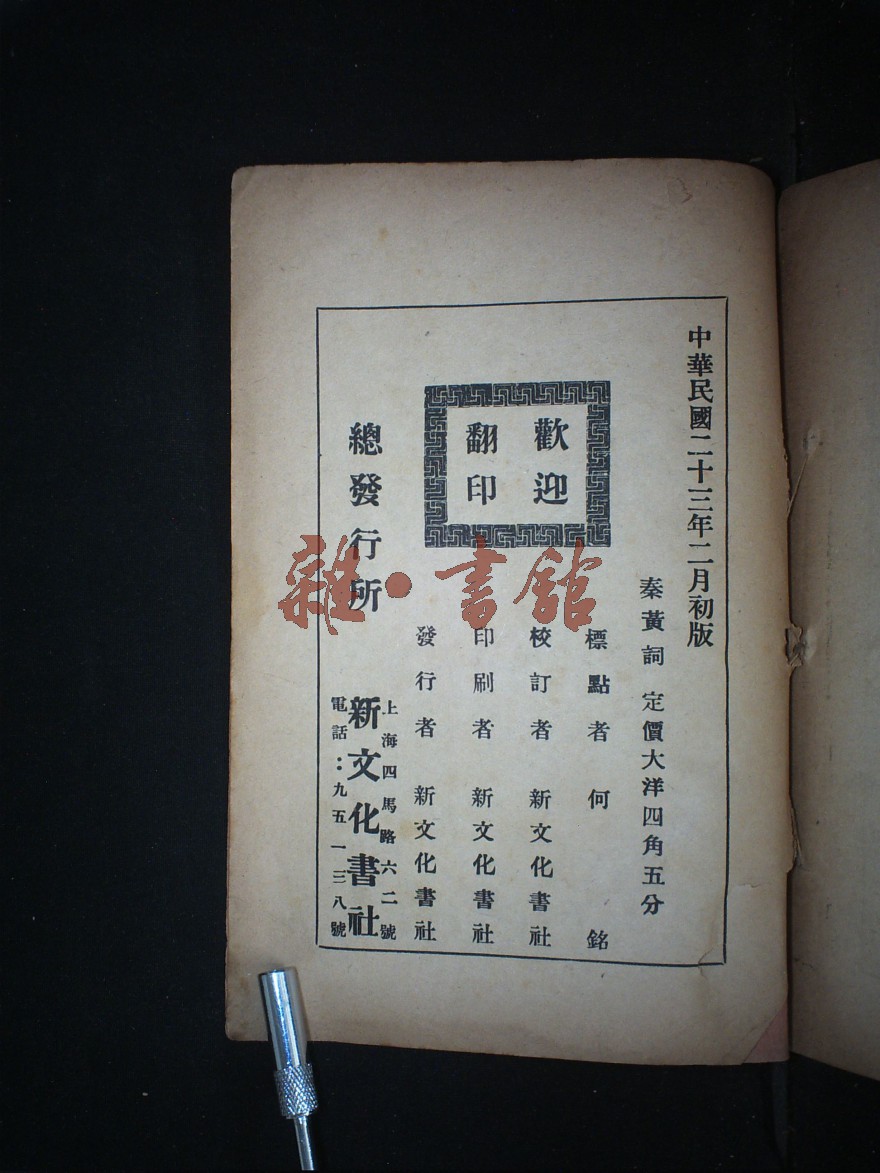 中華民國二十三年二月初版
秦黃詞 定價大洋四角五分
歡迎
翻印
標點者 何銘
校訂者 新文化書社
印刷者 新文化書社
發行者 新文化書社
總發行所
上海四馬路六二號
新文化書社
電話：九五一三八號
雜·書館